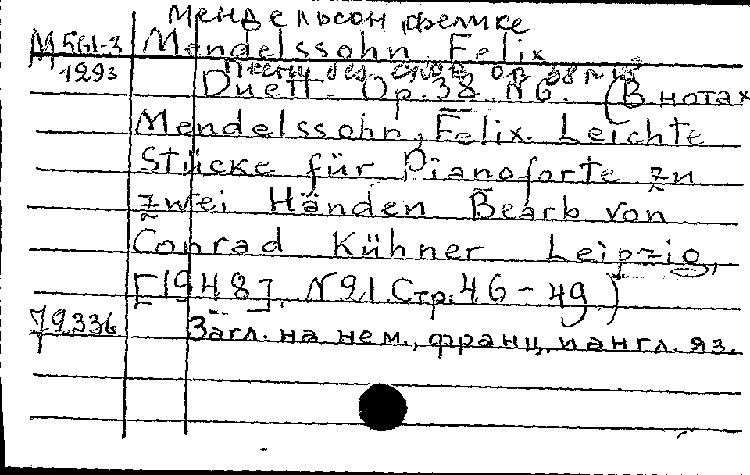 Мендельсон Феликс
М561-3 Mendelssohn, Felix.
1293 Песни без слов Ор 38 №6
Duett Op. 38. N6. (В нотах
Mendelssohn, Felix. Leichte
Stücke für Pianoforte zu
zwei Händen Bearb von
Conrad Kühner Leipzig,
[1948]. N91 Стр. 46-49)
79336 Загл. на нем., франц. и англ. яз.